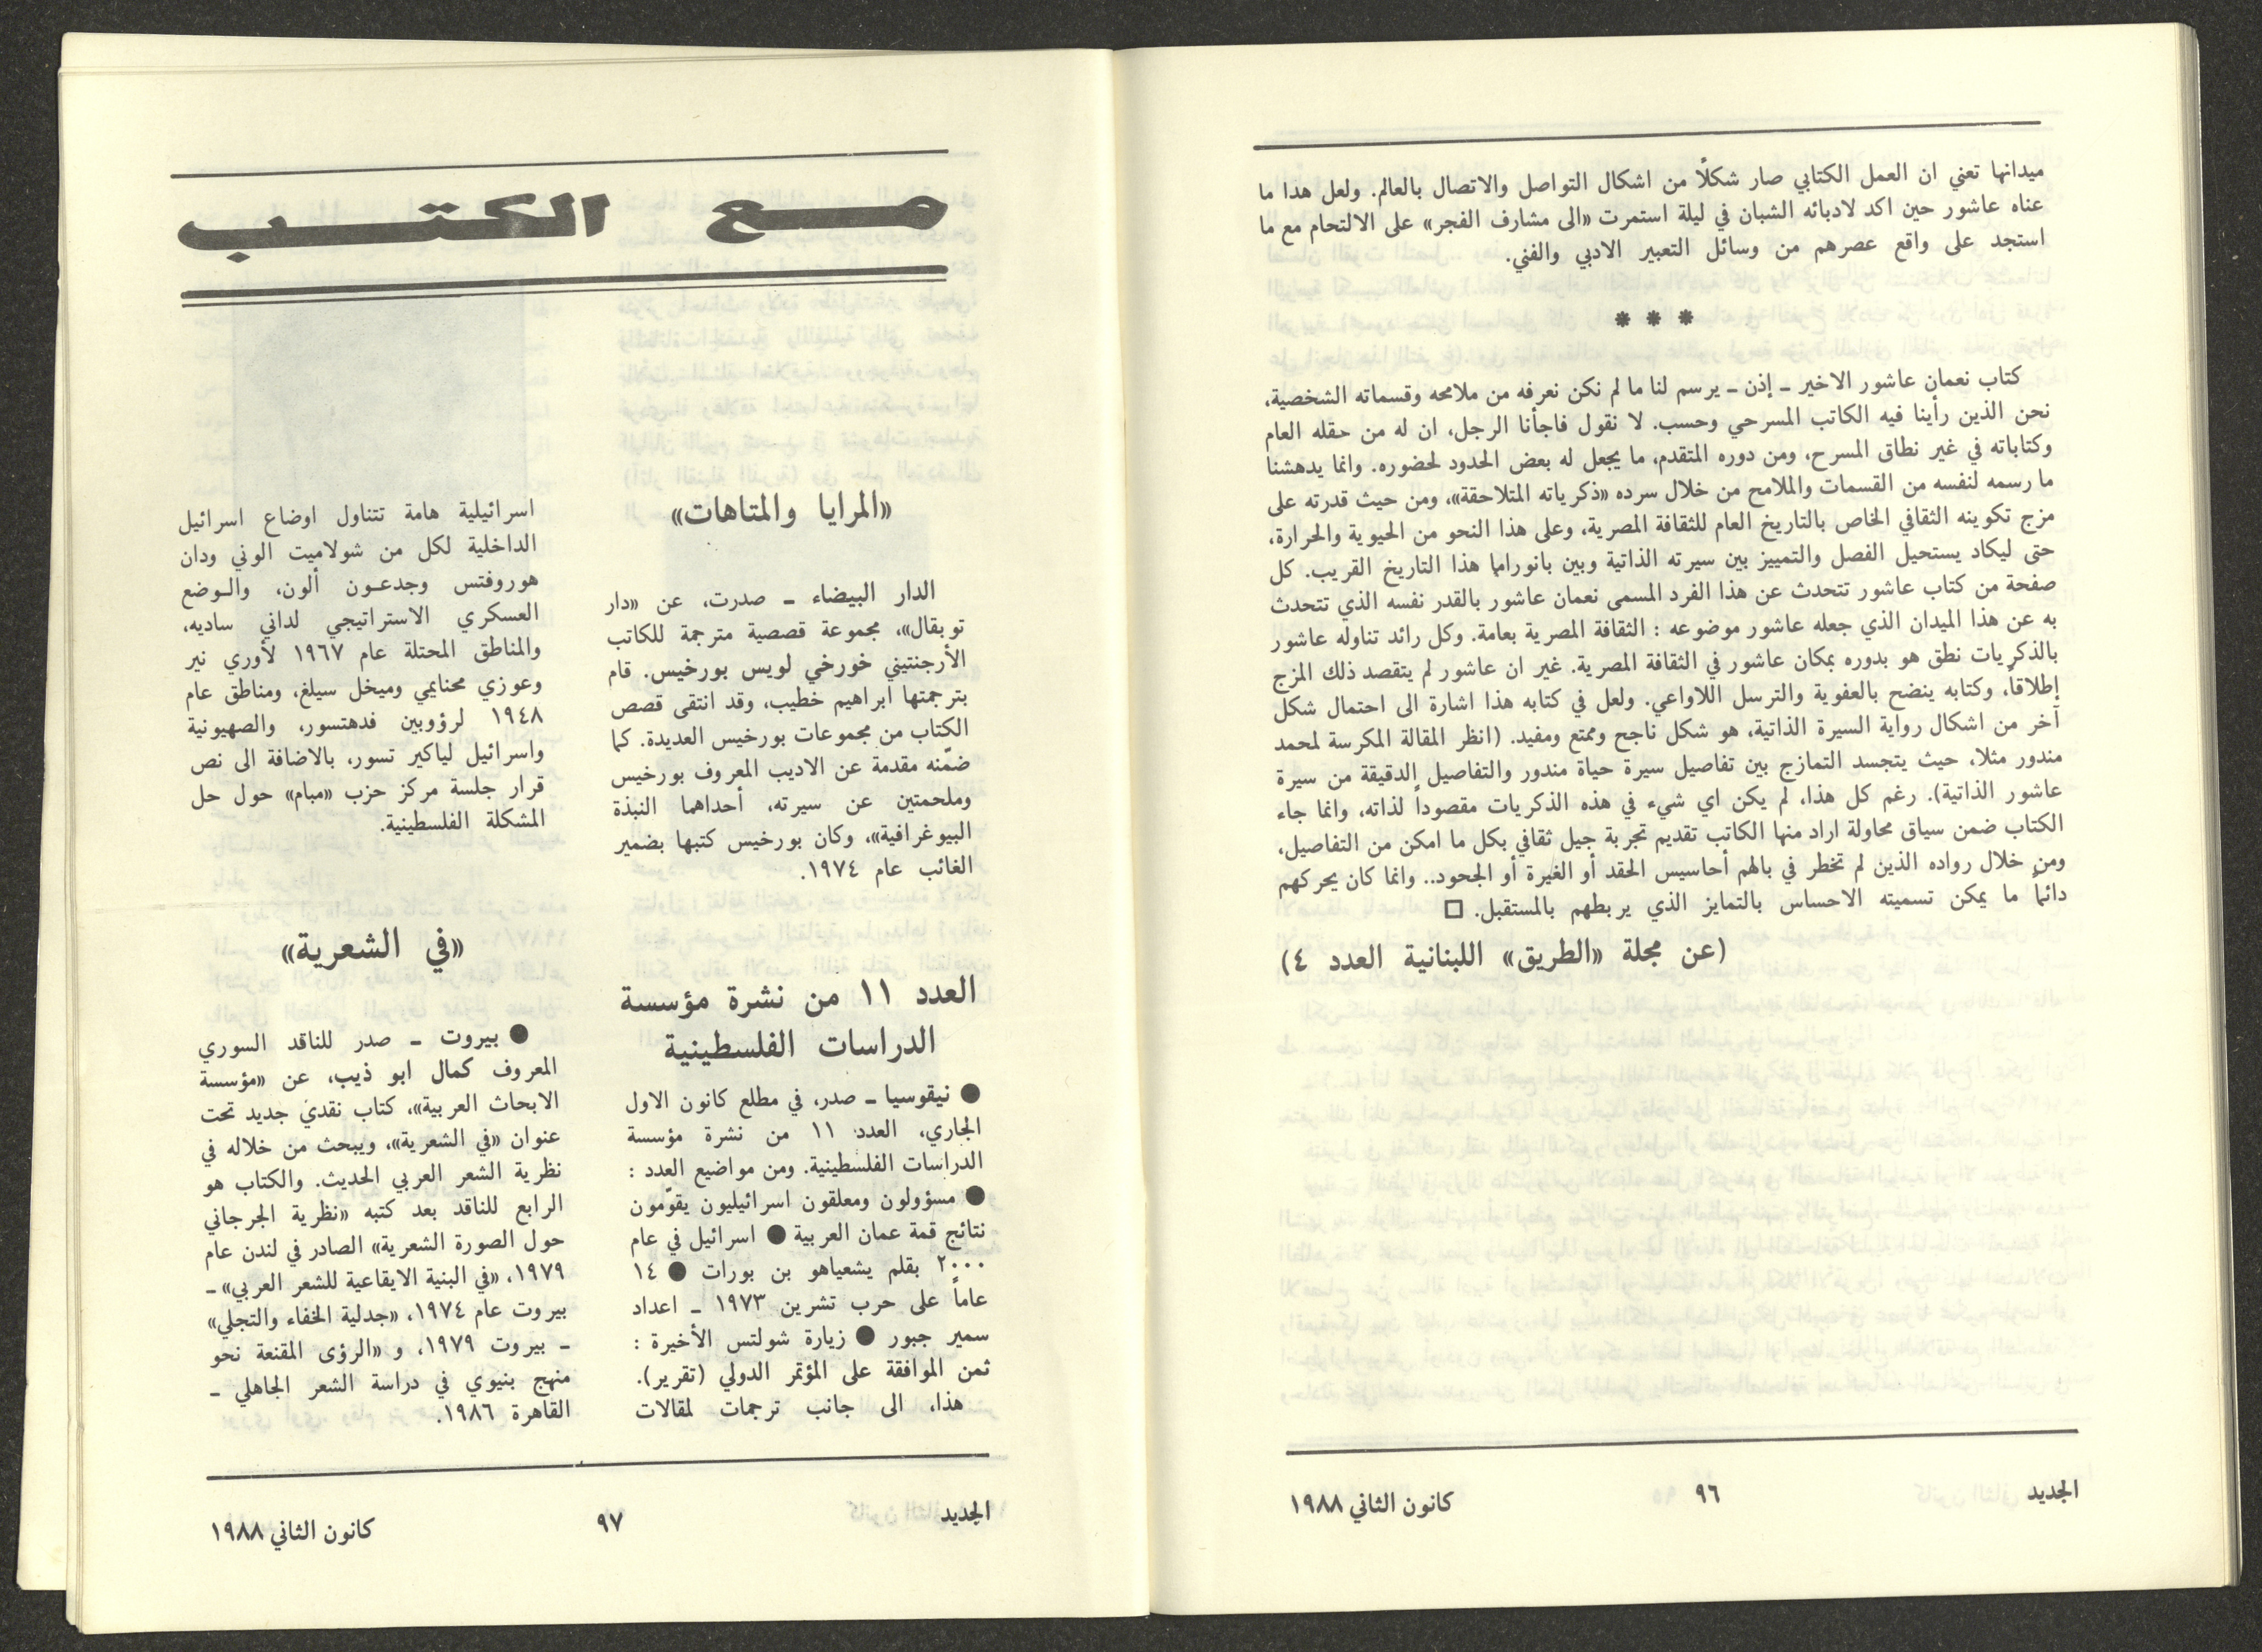 ميدانها تعني ان العمل الكتابي صار شكلاً من اشكال التواصل والاتصال بالعالم. ولعل هدا ما
عناه عاشور حين اكد لادبائه الشبان في ليلة استمرت «الى مشارف الفجر» على الالتحام مع ما
استجد على واقع عصرهم من وسائل التعبير الادبي والفني.
* * *
كتاب نعمان عاشور الاخير ـ إذن ـ يرسم لنا ما لم نكن نعرفه من ملامحه وقسماته الشخصية،
نحن الذين رأينا فيه الكاتب المسرحي وحسب. لا نقول فاجأنا الرجل، ان له من حقله العام
وكتاباته في غير نطاق المسرح، ومن دوره المتقدم، ما يجعل له بعض الحدود لحضوره. وانما يدهشنا
ما رسمه لنفسه من القسمات والملامح من خلال سرده «ذكرياته المتلاحقة»، ومن حيث قدرته على
مزج تكوينه الثقافي الخاص بالتاريخ العام للثقافة المصرية، وعلى هذا النحو من الحيوية والحرارة،
حتى ليكاد يستحيل الفصل والتمييز بين سيرته الذاتية وبين بانوراما هذا التاريخ القريب. كل
صفحة من كتاب عاشور تتحدث عن هذا الفرد المسمى نعمان عاشور بالقدر نفسه الذي تتحدث
به عن هذا الميدان الذي جعله عاشور موضوعه : الثقافة المصرية بعامة. وكل رائد تناوله عاشور
بالذكريات نطق هو بدوره بمكان عاشور في الثقافة المصرية. غير ان عاشور لم يتقصد ذلك المزج
إطلاقاً، وكتابه ينضح بالعفوية والترسل اللاواعي. ولعل في كتابه هذا اشارة الى احتمال شكل
آخر من اشكال رواية السيرة الذاتية، هو شكل ناجح وممتع ومفيد. (انظر المقالة المكرسة لمحمد
مندور مثلا، حيث يتجسد التمازج بين تفاصيل سيرة حياة مندور والتفاصيل الدقيقة من سيرة
عاشور الذاتية). رغم كل هذا، لم يكن اي شيء في هذه الذكريات مقصوداً لذاته، وانما جاء
الكتاب ضمن سياق محاولة اراد منها الكاتب تقديم تجربة جيل ثقافي بكل ما امكن من التفاصيل،
ومن خلال رواده الذين لم تخطر في بالهم أحاسيس الحقد أو الغيرة أو الجحود.. وانما كان يحركهم
دائماً ما يمكن تسميته الاحساس بالتمايز الذي يربطهم بالمستقبل. □
(عن مجلة «الطريق» اللبنانية العدد ٤)
الجديد
٩٦
كانون الثاني ١٩٨٨
مع الكتب
«المرايا والمتاهات»
الدار البيضاء ـ صدرت، عن «دار
توبقال»، مجموعة قصصية مترجمة للكاتب
الأرجنتيني خورخي لويس بورخيس. قام
بترجمتها ابراهيم خطيب، وقد انتقى قصص
الكتاب من مجموعات بورخيس العديدة. كما
ضمّنه مقدمة عن الاديب المعروف بورخيس
وملحمتين عن سيرته، أحداهما النبذة
البيوغرافية»، وكان بورخيس كتبها بضمير
الغائب عام ١٩٧٤.
العدد ١١ من نشرة مؤسسة
الدراسات الفلسطينية
● نيقوسيا ـ صدر، في مطلع كانون الاول
الجاري، العدد ١١ من نشرة مؤسسة
الدراسات الفلسطينية. ومن مواضيع العدد :
● مسؤولون ومعلقون اسرائيليون يقوّمون
نتائج قمة عمان العربية ● اسرائيل في عام
٢٠٠٠ بقلم يشعياهو بن بورات ● ١٤
عاماً على حرب تشرين ١٩٧٣ ـ اعداد
سمير جبور ● زيارة شولتس الأخيرة :
ثمن الموافقة على المؤتمر الدولي (تقرير).
هذا، الى جانب ترجمات لمقالات
اسرائيلية هامة تتناول اوضاع اسرائيل
الداخلية لكل من شولاميت الوني ودان
هوروفتس وجدعون ألون، والوضع
العسكري الاستراتيجي لداني ساديه،
والمناطق المحتلة عام ١٩٦٧ لأوري نير
وعوزي محنايمي وميخل سيلغ، ومناطق عام
١٩٤٨ لرؤوبين فدهتسور، والصهيونية
واسرائيل لياكير تسور، بالاضافة الى نص
قرار جلسة مركز حزب «مبام» حول حل
المشكلة الفلسطينية.
«في الشعرية»
● بيروت ـ صدر للناقد السوري
المعروف كمال ابو ذيب، عن «مؤسسة
الابحاث العربية»، كتاب نقدي جديد تحت
عنوان «في الشعرية»، ويبحث من خلاله في
نظرية الشعر العربي الحديث. والكتاب هو
الرابع للناقد بعد كتبه «نظرية الجرجاني
حول الصورة الشعرية» الصادر في لندن عام
١٩٧٩، «في البنية الايقاعية للشعر العربي» ـ
بيروت عام ١٩٧٤، «جدلية الخفاء والتجلي»
ـ بيروت ١٩٧٩، و «الرؤى المقنعة نحو
منهج بنيوي في دراسة الشعر الجاهلي ـ
القاهرة ١٩٨٦.
الجديد
٩٧
كانون الثاني ١٩٨٨